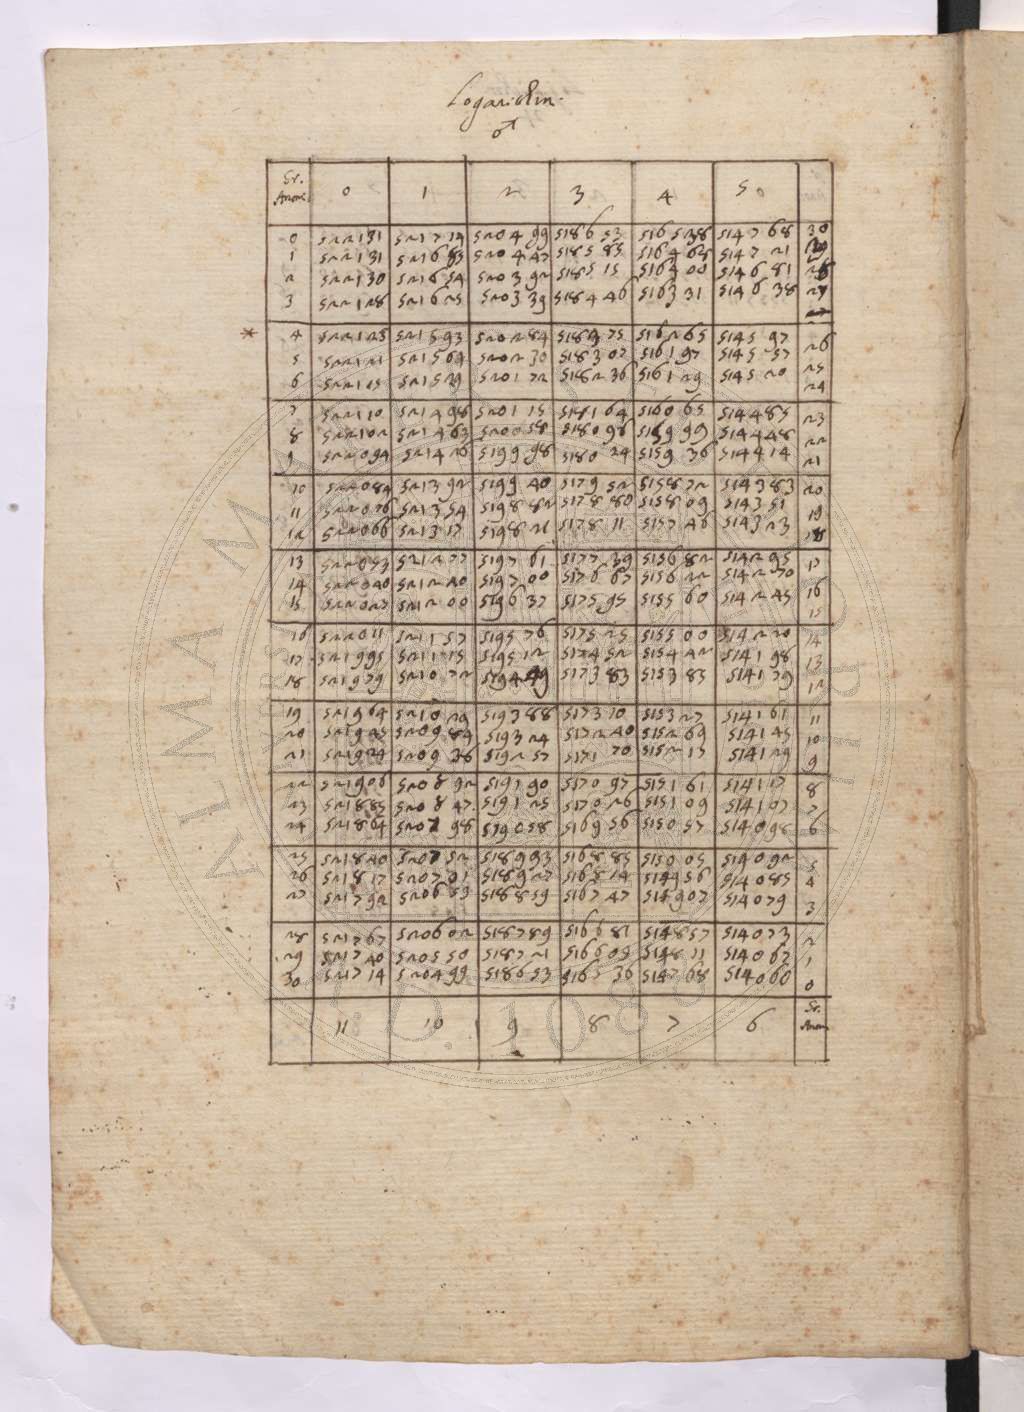 Logarithm.
♂
Gr. Anom. 0 1 2 3 4 5
0 522131 521714 520499 518653 516538 514768 30
1 522131 521685 520447 518585 516468 514721 29
2 522130 521654 520392 518515 516400 514681 28
3 522128 521625 520339 518446 516331 514638 27
* 4 522125 521593 520284 518375 516265 514597 26
5 522121 521561 520230 518307 516197 514557 25
6 522115 521529 520172 518236 516129 514520 24
7 522110 521498 520115 518164 516065 514485 23
8 522102 521463 520058 518096 515999 514448 22
9 522094 521426 519998 518024 515936 514414 21
10 522084 521392 519940 517952 515872 514383 20
11 522076 521354 519882 517880 515809 514351 19
12 522066 521317 519821 517811 515746 514323 18
13 522053 521277 519761 517739 515682 514295 17
14 522040 521240 519700 517667 515622 514270 16
15 522027 521200 519637 517595 515560 514245 15
16 522011 521157 519576 517525 515500 514220 14
17 521995 521115 519512 517452 515442 514198 13
18 521979 521072 519449 517383 515383 514179 12
19 521964 521029 519388 517310 515327 514161 11
20 521945 520984 519324 517240 515269 514145 10
21 521924 520936 519257 517170 515217 514129 9
22 521906 520892 519190 517097 515161 514117 8
23 521885 520847 519125 517026 515109 514107 7
24 521864 520798 519058 516956 515057 514098 6
25 521840 520752 518993 516885 515005 514092 5
26 521817 520701 518927 516814 514956 514085 4
27 521792 520653 518859 516747 514907 514079 3
28 521767 520602 518789 516681 514857 514073 2
29 521740 520550 518721 516609 514811 514067 1
30 521714 520499 518653 516536 514768 514060 0
11 10 9 8 7 6 Gr. Anom.
ALMA MATER
A.D. 1088